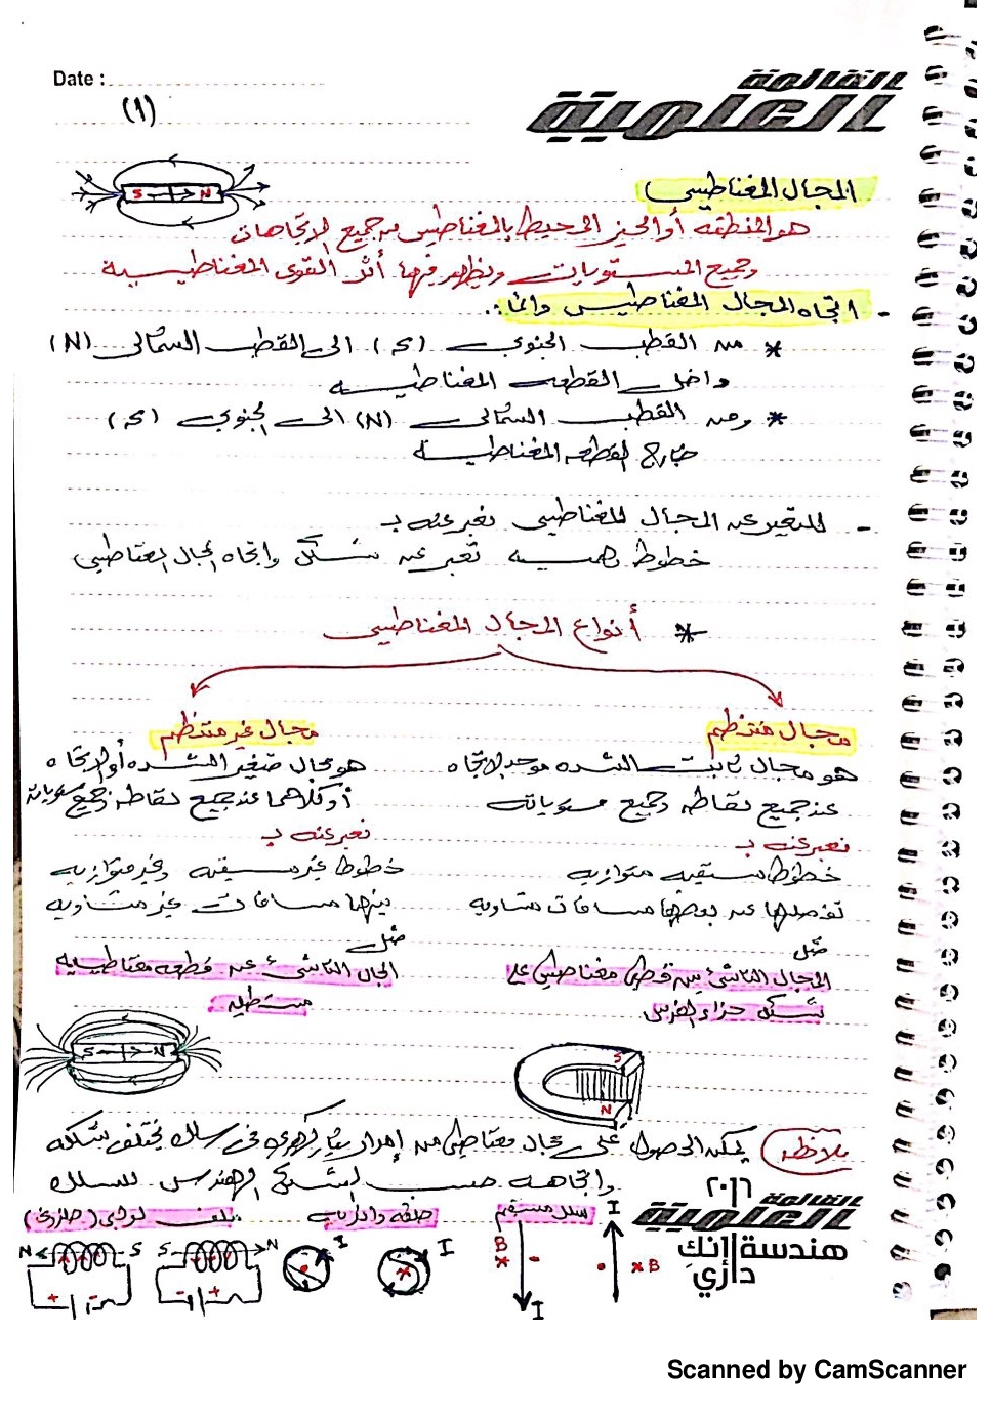 Date :
القائمة
العلمية
(1)
S N
المجال المغناطيسي
هو المنطقه أو الحيز المحيط بالمغناطيس من جميع الاتجاهات
وجميع المستويات ويظهر فيها أثر القوى المغناطيسية
- اتجاه المجال المغناطيسي دائما :
* من القطب الجنوبي (S) الى القطب الشمالي (N)
داخل القطعه المغناطيسيه
* ومن القطب الشمالي (N) الى الجنوبي (S)
خارج القطعه المغناطيسية
- للتعبير عن المجال المغناطيسي نعبر عنه بـ
خطوط وهميه تعبر عن شكل واتجاه المجال المغناطيسي
* أنواع المجال المغناطيسي
مجال منتظم
هو مجال ثابت الشده موحد الاتجاه
عند جميع نقاطه وجميع مستوياته
نعبر عنه بـ
خطوط مستقيمه متوازيه
تفصلها عن بعضها مسافات متساويه
مثل
المجال الناشئ بين قطبي مغناطيس على
شكل حذاء الفرس
S
N
مجال غير منتظم
هو مجال متغير الشده أو الاتجاه
أو كلاهما عند جميع نقاطه وجميع مستوياته
نعبر عنه بـ
خطوط غير مستقيمه وغير متوازيه
بينها مسافات غير متساويه
مثل
المجال الناشئ عن قطعه مغناطيسيه
مستطيله
S N
ملاظه يمكن الحصول على مجال مغناطيسي من إمرار تيار كهربي في سلك يختلف شكله
واتجاهه حسب الشكل الهندسي للسلك
سلك مستقيم
حلقه دائريه
ملف لولبي (حلزوني)
I B
B I
I
I
S N
N S
٢٠١٦
القائمة
العلمية
هندسة إنك
داري
Scanned by CamScanner